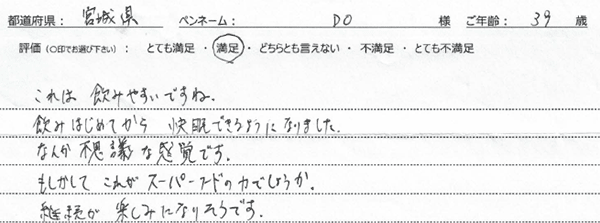 都道府県： 宮城県 ペンネーム： DO 様 ご年齢： 39 歳
評価（○印でお選び下さい）： とても満足 ・ 満足 ・ どちらとも言えない ・ 不満足 ・ とても不満足
これは 飲みやすいですね.
飲みはじめてから 快眠できるようになりました.
なんか不思議な感覚です.
もしかして これが スーパーフードの力でしょうか.
継続が 楽しみになりそうです.